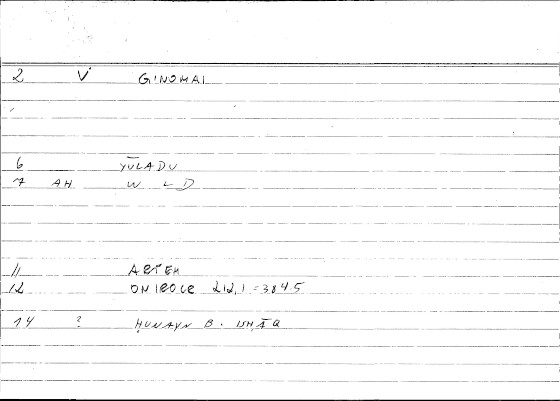 2 V GINOMAI
6 YŪLADU
7 AH W L D
11 ARTEM
12 ONIROCR 212,1 = 384.5
14 ? ḤUNAYN B. ISḤĀQ